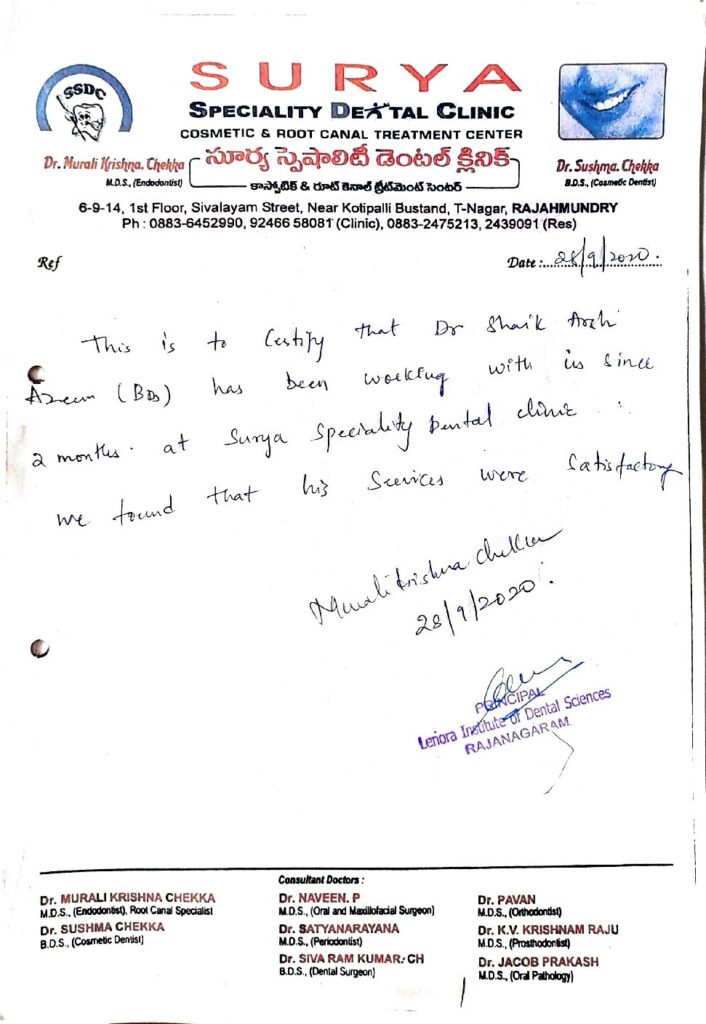 SSDC
SURYA
SPECIALITY DENTAL CLINIC
COSMETIC & ROOT CANAL TREATMENT CENTER
Dr. Murali Krishna. Chekka
M.D.S., (Endodontist)
సూర్య స్పెషాలిటీ డెంటల్ క్లినిక్
కాస్మోటిక్ & రూట్ కెనాల్ ట్రీట్‌మెంట్ సెంటర్
Dr. Sushma. Chekka
B.D.S., (Cosmetic Dentist)
6-9-14, 1st Floor, Sivalayam Street, Near Kotipalli Bustand, T-Nagar, RAJAHMUNDRY
Ph : 0883-6452990, 92466 58081 (Clinic), 0883-2475213, 2439091 (Res)
Ref
Date :..28/9/2020..
This is to Certify that Dr Shaik Arshi
Azeem (BDS) has been working with us since
2 months. at Surya Speciality Dental clinic.
we found that his Services were Satisfactory
Muralikrishna Chekka
28/9/2020.
PRINCIPAL
Lenora Institute of Dental Sciences
RAJANAGARAM
Dr. MURALI KRISHNA CHEKKA
M.D.S., (Endodontist), Root Canal Specialist
Dr. SUSHMA CHEKKA
B.D.S., (Cosmetic Dentist)
Consultant Doctors :
Dr. NAVEEN. P
M.D.S., (Oral and Maxillofacial Surgeon)
Dr. SATYANARAYANA
M.D.S., (Periodontist)
Dr. SIVA RAM KUMAR. CH
B.D.S., (Dental Surgeon)
Dr. PAVAN
M.D.S., (Orthodontist)
Dr. K.V. KRISHNAM RAJU
M.D.S., (Prosthodontist)
Dr. JACOB PRAKASH
M.D.S., (Oral Pathology)